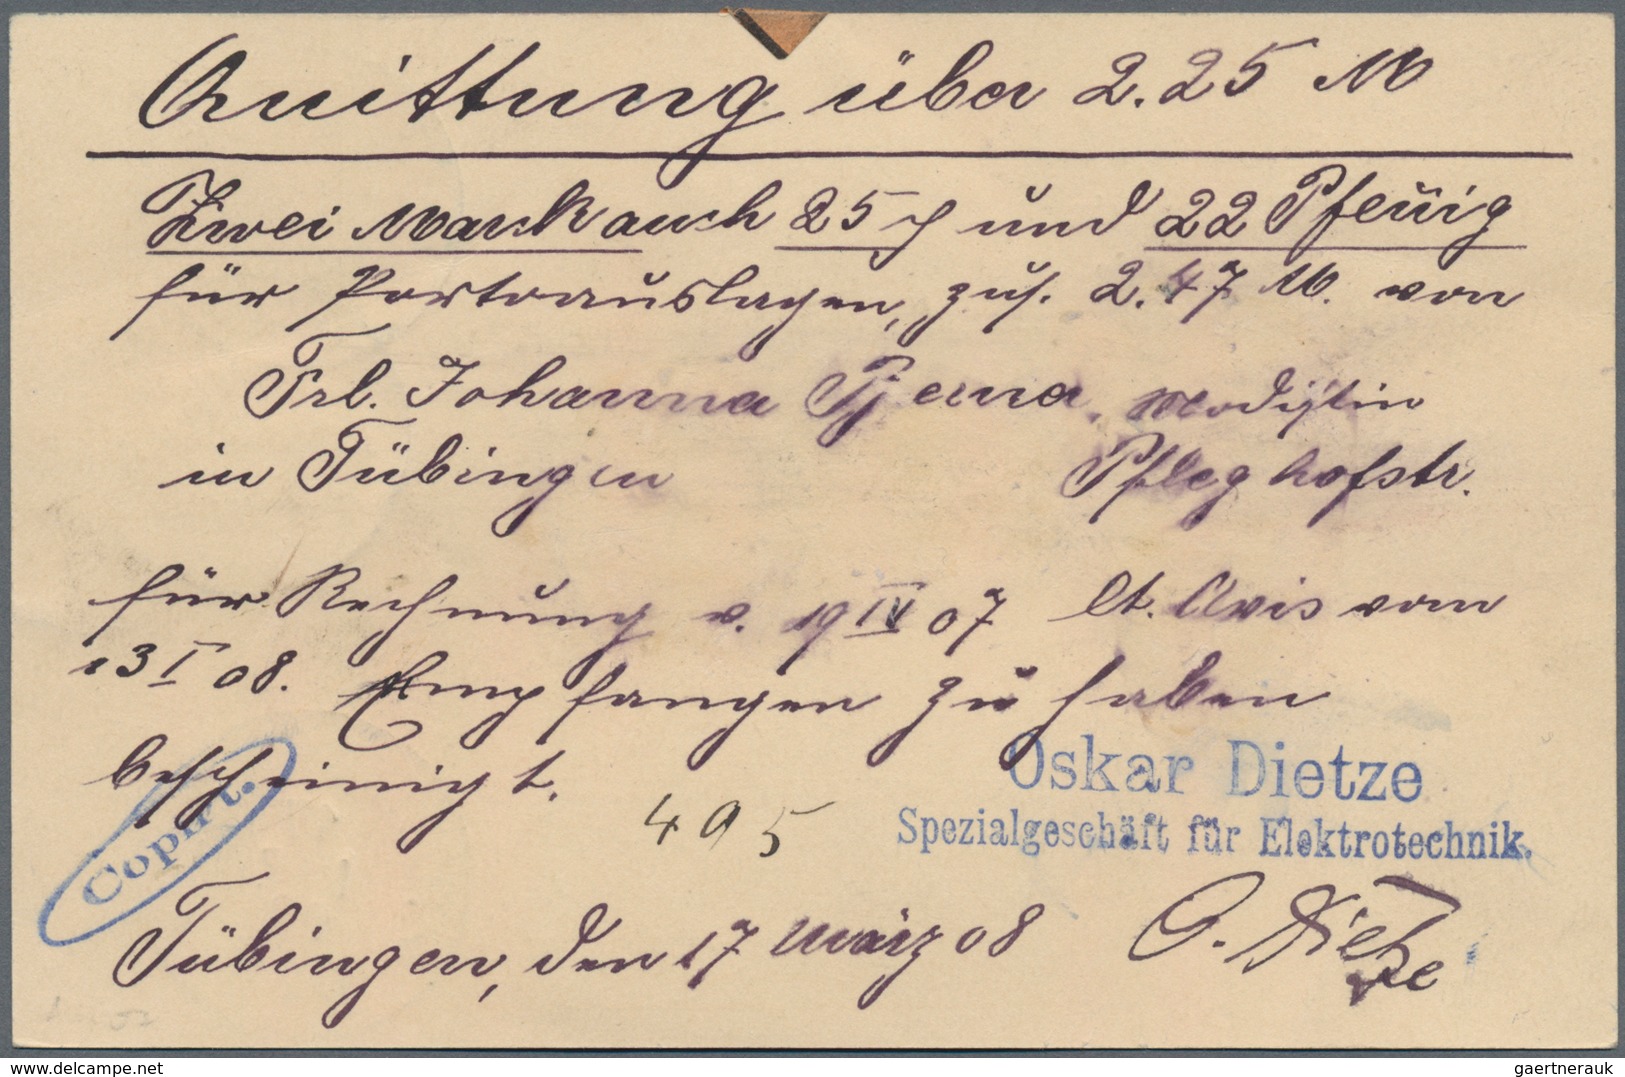 Quittung über 2.25 M
Zwei Mark auch 25 ₰ und 22 Pfennig
für Portoauslagen, zus. 2.47 M. von
Frl. Johanna Modistin
in Tübingen Pfleghofstr.
für Rechnung v. 19 IV 07 lt. Avis vom
13 I 08. Empfangen zu haben
bescheinigt.
Oskar Dietze
Spezialgeschäft für Elektrotechnik.
495
Copirt.
Tübingen, den 17 März 08 O. Dietze
delcampe.net
gaertnerauk